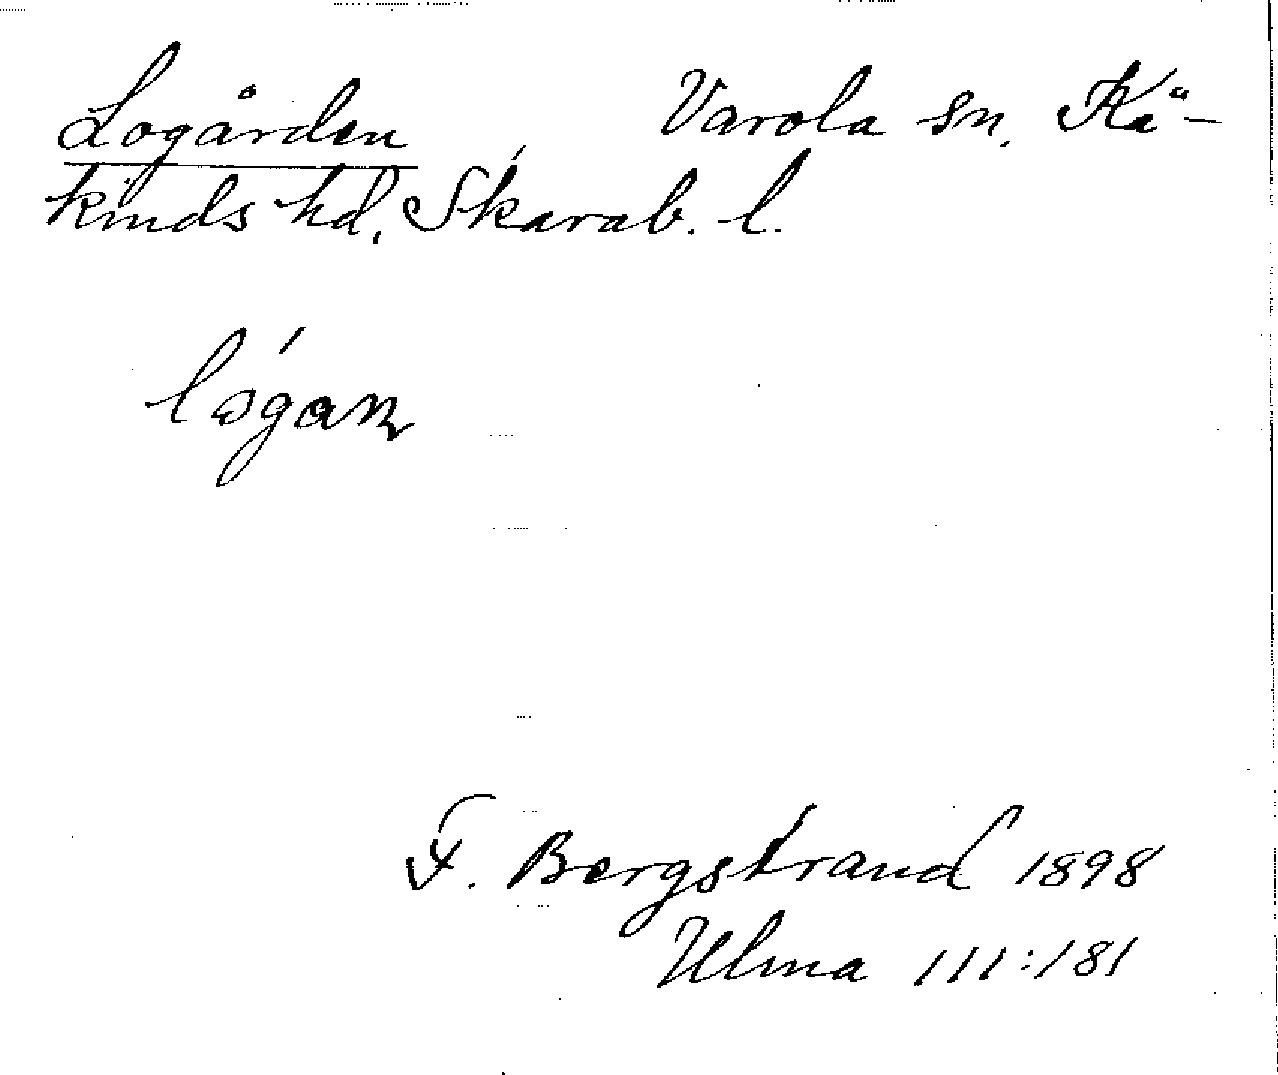 Logården, Varola sn. Kå-
kinds hd, Skarab. l.
F. Bergstrand 1898
Ulma 111:181